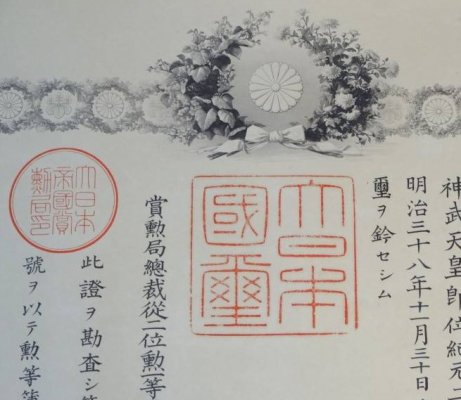 神武天皇即位紀元二
明治三十八年十一月三十日
璽ヲ鈐セシム
大日本
國璽
賞勳局總裁從二位勳一等
大日本
帝國賞
勳局印
此證ヲ勘査シ
號ヲ以テ勳等